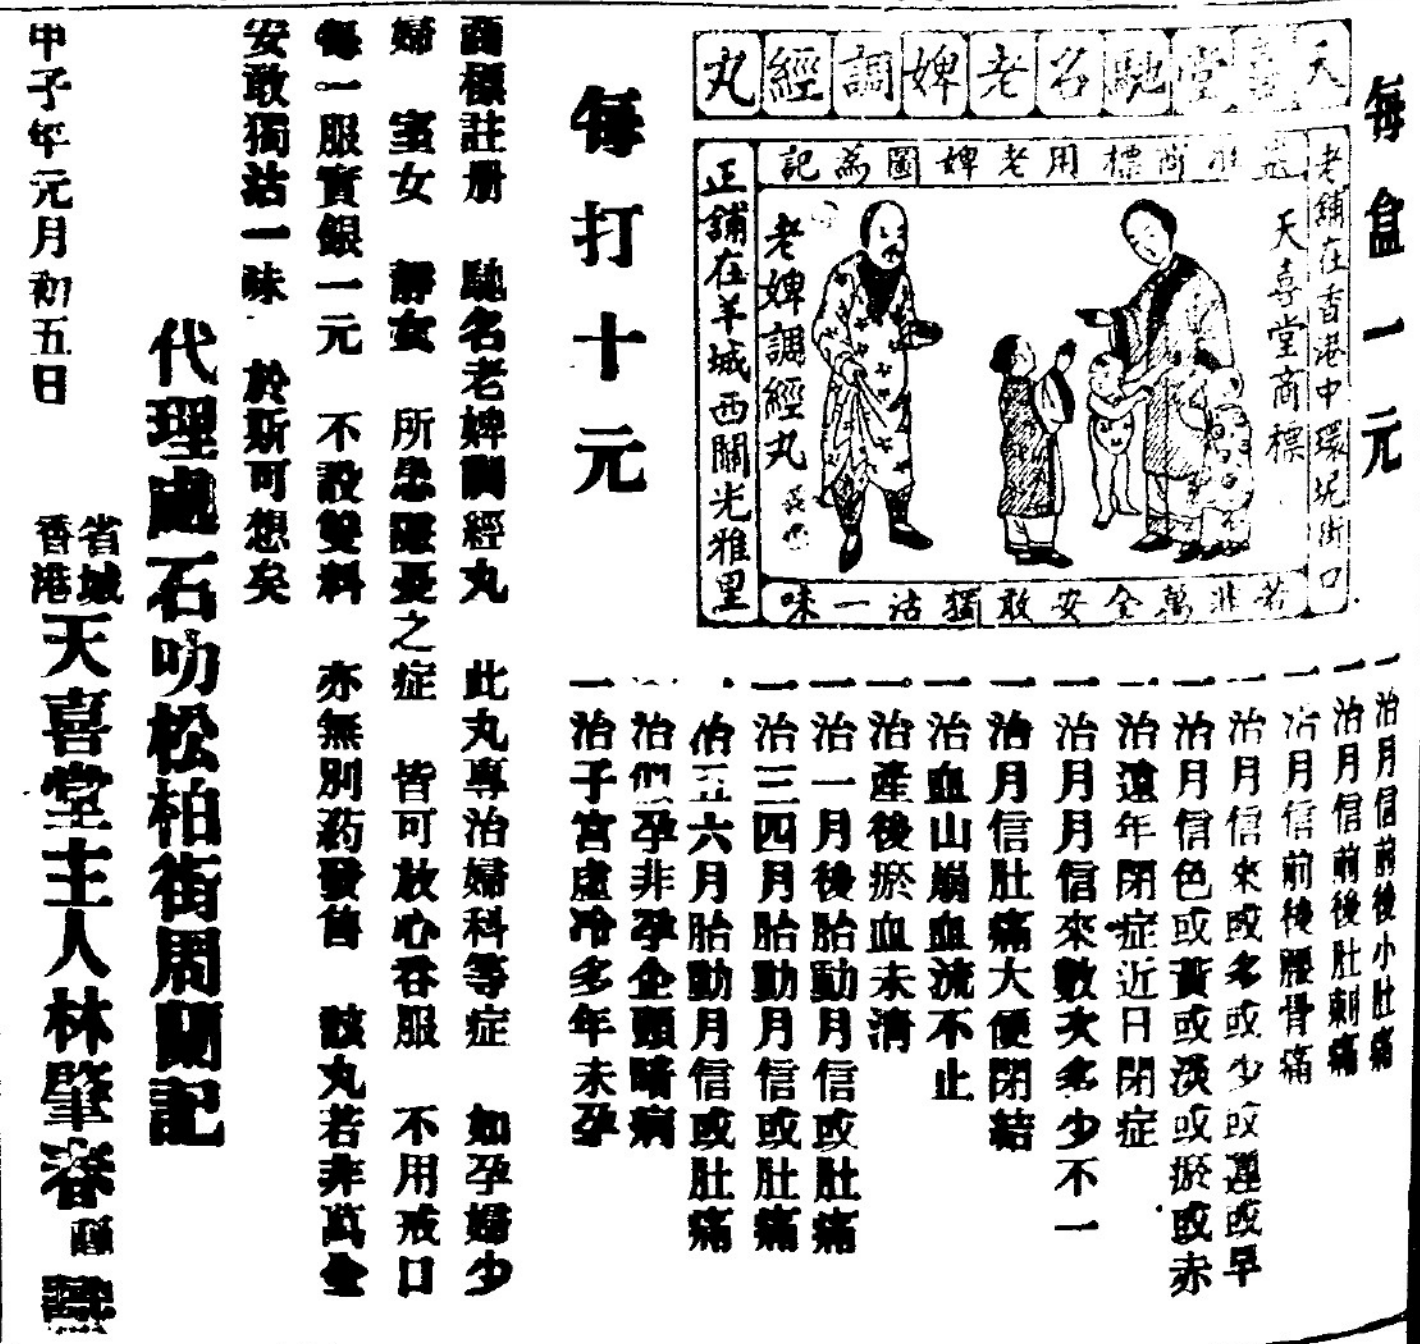 每盒一元
天喜堂馳名老婢調經丸
商標用老婢圖為記
老舖在香港中環坭街口
天喜堂商標
老婢調經丸
正舖在羊城西關光雅里
若非萬全安敢獨沽一味
每打十元
一治月信前後小肚痛
一治月信前後肚刺痛
一治月信前後腰骨痛
一治月信來或多或少或遲或早
一治月信色或黃或淡或瘀或赤
一治遠年閉症近日閉症
一治月月信來數次多少不一
一治月信肚痛大便閉結
一治血山崩血流不止
一治產後瘀血未清
一治一月後胎動月信或肚痛
一治三四月胎動月信或肚痛
治五六月胎動月信或肚痛
治孕非孕企頭暗病
一治子宮虛冷多年未孕
商標註册 馳名老婢調經丸 此丸專治婦科等症 如孕婦少
婦 室女 靜女 所患隱憂之症 皆可放心吞服 不用戒口
每一服實銀一元 不設雙料 亦無別葯發售 該丸若非萬全
安敢獨沽一味 於斯可想矣
代理處石叻松柏街周蘭記
省城
香港
天喜堂主人林肇春
甲子年元月初五日